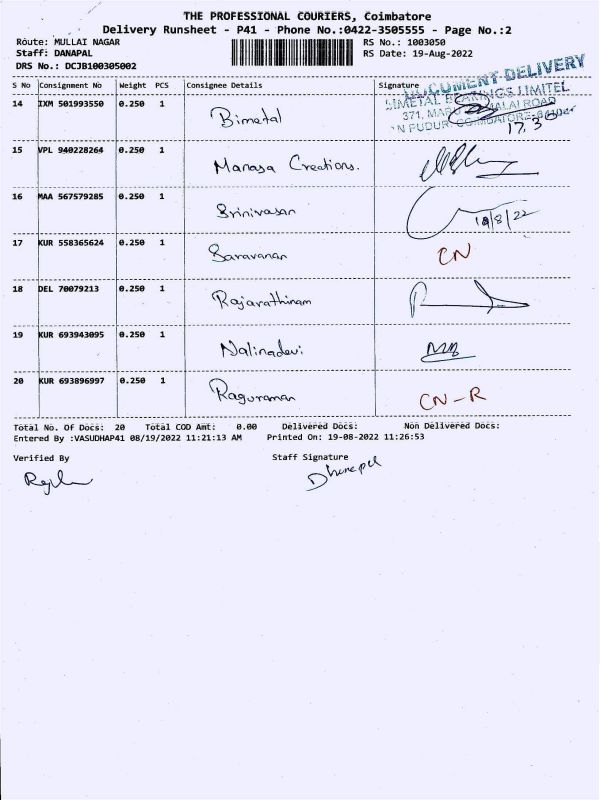 THE PROFESSIONAL COURIERS, Coimbatore
Delivery Runsheet - P41 - Phone No.:0422-3505555 - Page No.:2
Route: MULLAI NAGAR RS No.: 1003050
Staff: DANAPAL RS Date: 19-Aug-2022
DRS No.: DCJB100305002
S No Consignment No Weight PCS Consignee Details Signature
14 IXM 501993550 0.250 1 Bimetal
DOCUMENT DELIVERY
BIMETAL BEARINGS LIMITED
371,
17.30
15 VPL 940228264 0.250 1 Manasa Creations.
16 MAA 567579285 0.250 1 Srinivasan 19/8/22
17 KUR 558365624 0.250 1 Saravanan CN
18 DEL 70079213 0.250 1 Rajarathinam
19 KUR 693943095 0.250 1 Nalinadevi
20 KUR 693896997 0.250 1 Raguraman CN-R
Total No. Of Docs: 20 Total COD Amt: 0.00 Delivered Docs: Non Delivered Docs:
Entered By :VASUDHAP41 08/19/2022 11:21:13 AM Printed On: 19-08-2022 11:26:53
Verified By Staff Signature